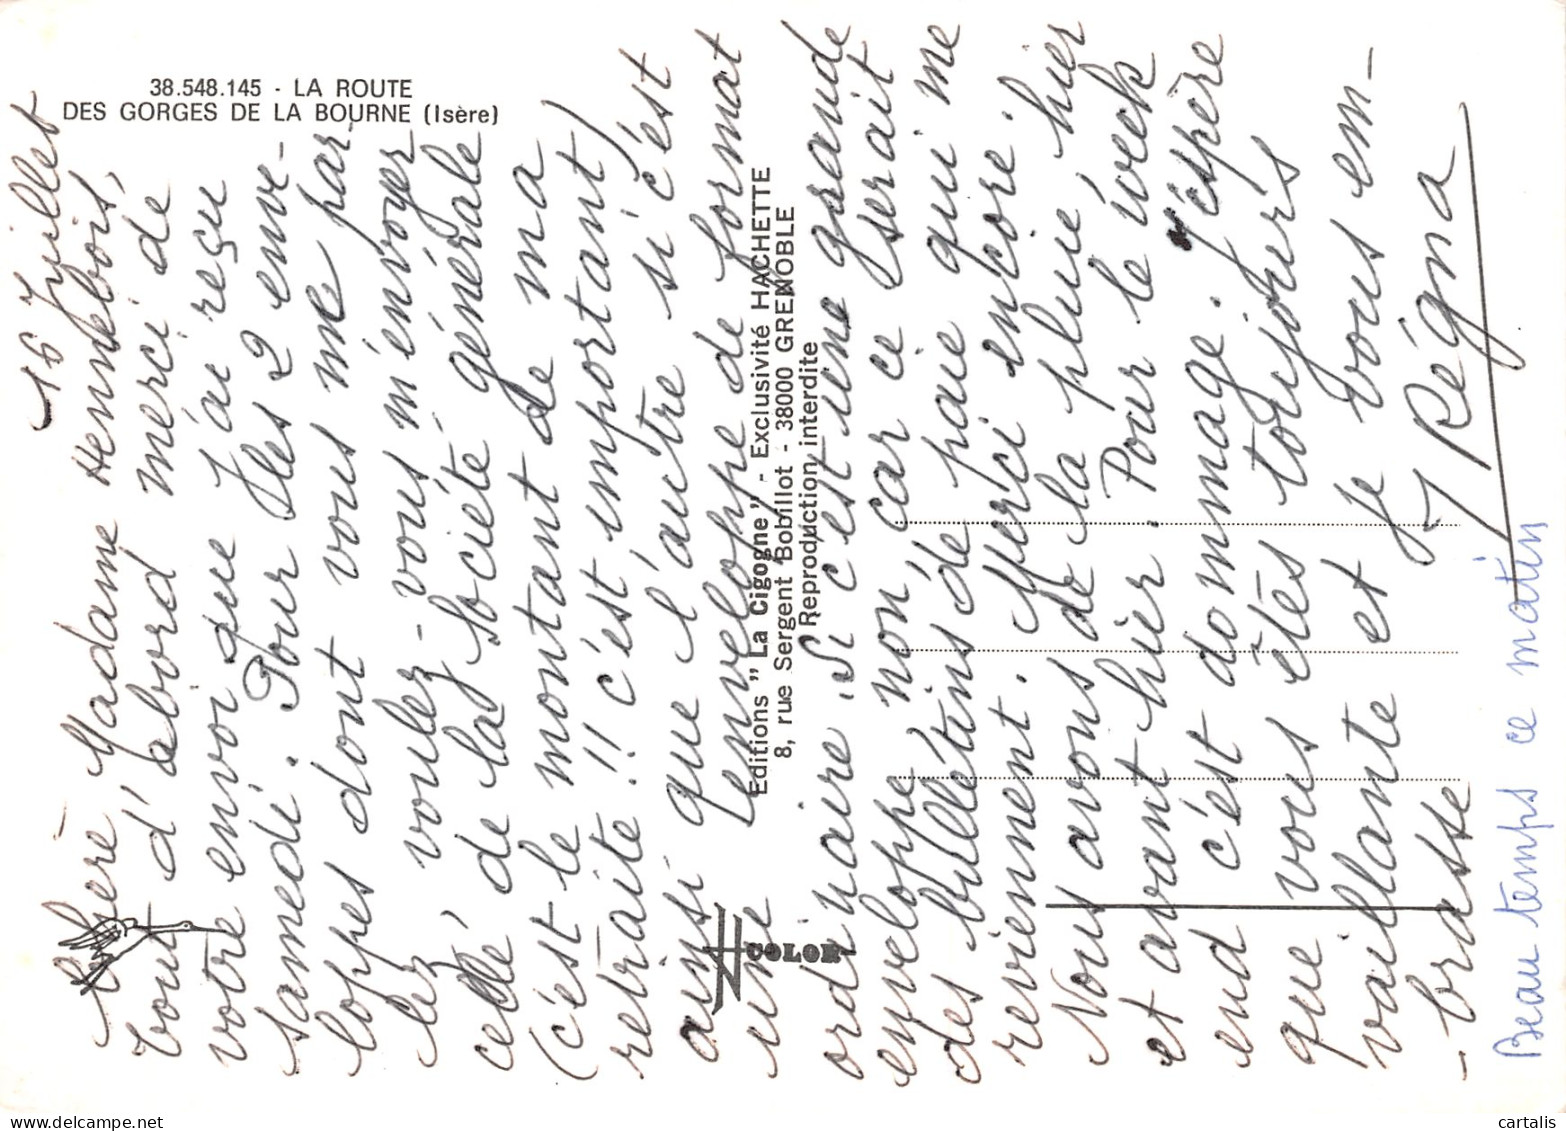 38.548.145 - LA ROUTE
DES GORGES DE LA BOURNE (Isère)
16 Juillet
Chère Madame Hennebois,
tout d'abord merci de
votre envoi que j'ai reçu
samedi. Pour les 2 enve-
loppes dont vous me par-
lez, voulez-vous m'envoyer
celle de la Société générale
(c'est le montant de ma
retraite !! c'est important)
ainsi que l'autre si c'est
une enveloppe de format
ordinaire. Si c'est une grande
enveloppe, non, car ce serait
des bulletins de paie qui me
reviennent. Merci encore.
Nous avons de la pluie hier
et avant hier. Pour le week
end c'est dommage. J'espère
que vous êtes toujours
vaillante et je vous em-
-brasse
J Régna
Beau temps ce matin
Editions "La Cigogne" - Exclusivité HACHETTE
8, rue Sergent Bobillot - 38000 GRENOBLE
Reproduction interdite
COLOR
cartalis